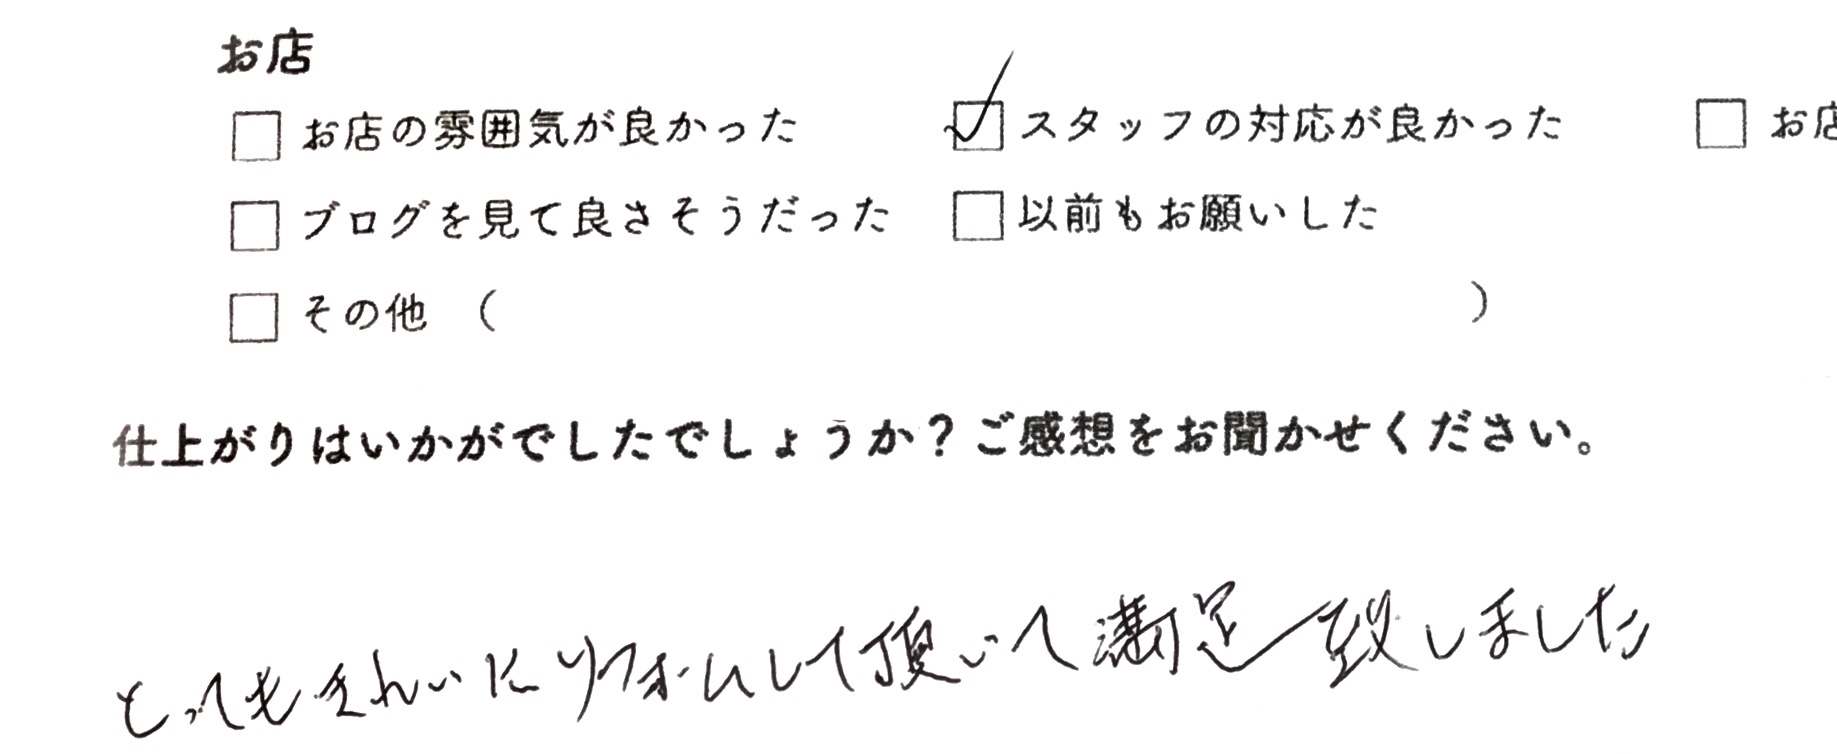 お店
□ お店の雰囲気が良かった ☑ スタッフの対応が良かった □ お店
□ ブログを見て良さそうだった □ 以前もお願いした
□ その他 ( )
仕上がりはいかがでしたでしょうか？ご感想をお聞かせください。
とってもきれいにリフォームして頂いて満足致しました